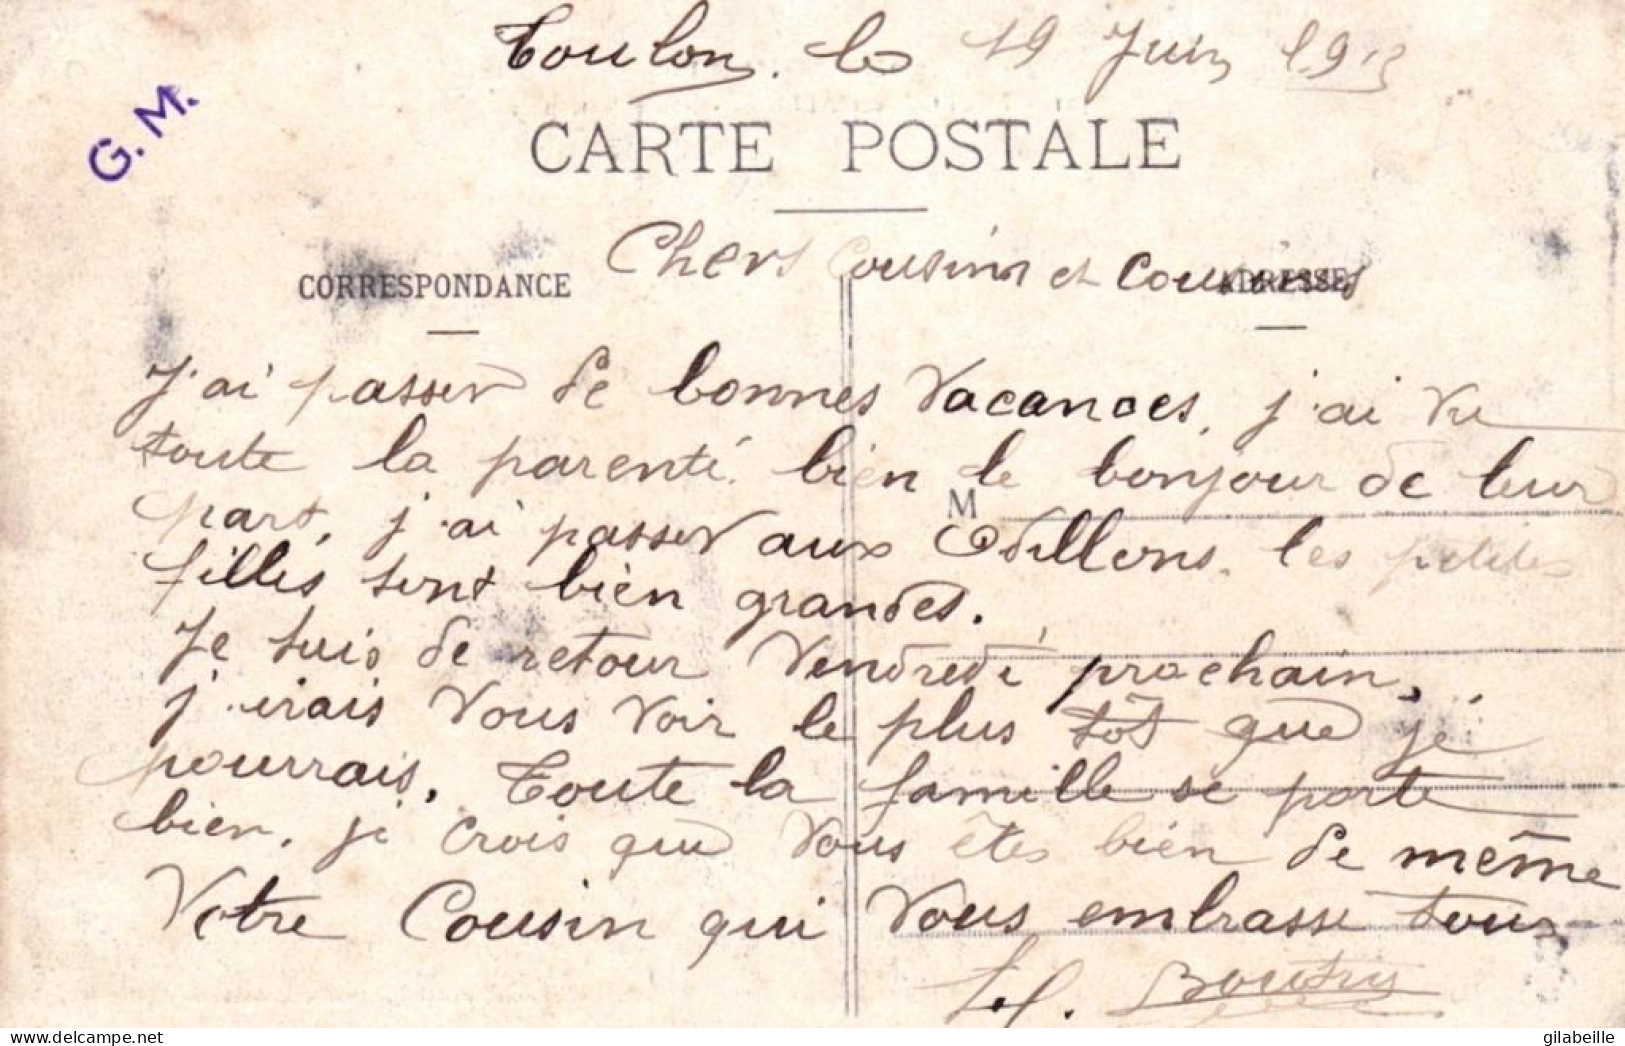 Toulon. le 19 Juin 1913
G. M.
CARTE POSTALE
Chers Cousins et Cousines
CORRESPONDANCE
ADRESSE
J'ai passer de bonnes Vacances, j'ai vu
toute la parenté. bien le bonjour de leur
M
part, j'ai passer aux Odillons, les petites
filles sont bien grandes.
Je suis de retour Vendredi prochain,
j'irais Vous Voir le plus tôt que je
pourrais. Toute la famille se porte
bien. je crois que Vous êtes bien de même
Votre Cousin qui Vous embrasse tous
Boutry
delcampe.net
gilabeille